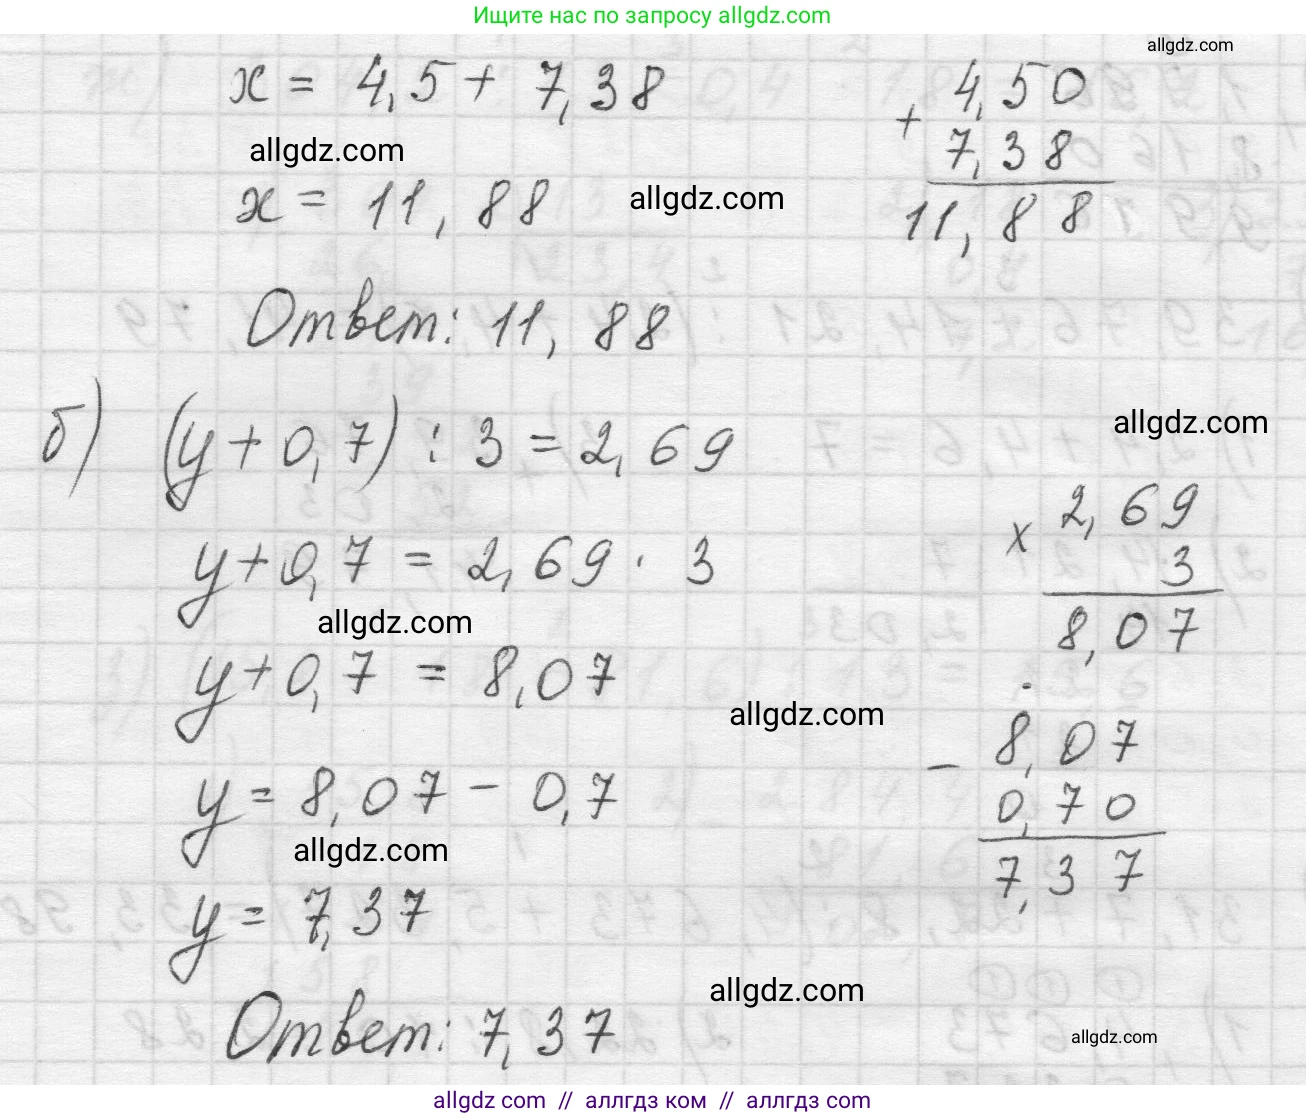 Ищите нас по запросу allgdz.com
allgdz.com
x = 4,5 + 7,38
+ 4,50
7,38
11,88
allgdz.com
x = 11,88
allgdz.com
Ответ: 11,88
б) (y + 0,7) : 3 = 2,69
allgdz.com
y + 0,7 = 2,69 · 3
x 2,69
3
8,07
allgdz.com
y + 0,7 = 8,07
allgdz.com
y = 8,07 - 0,7
- 8,07
0,70
7,37
allgdz.com
y = 7,37
allgdz.com
Ответ: 7,37
allgdz.com
allgdz.com // аллгдз ком // аллгдз com